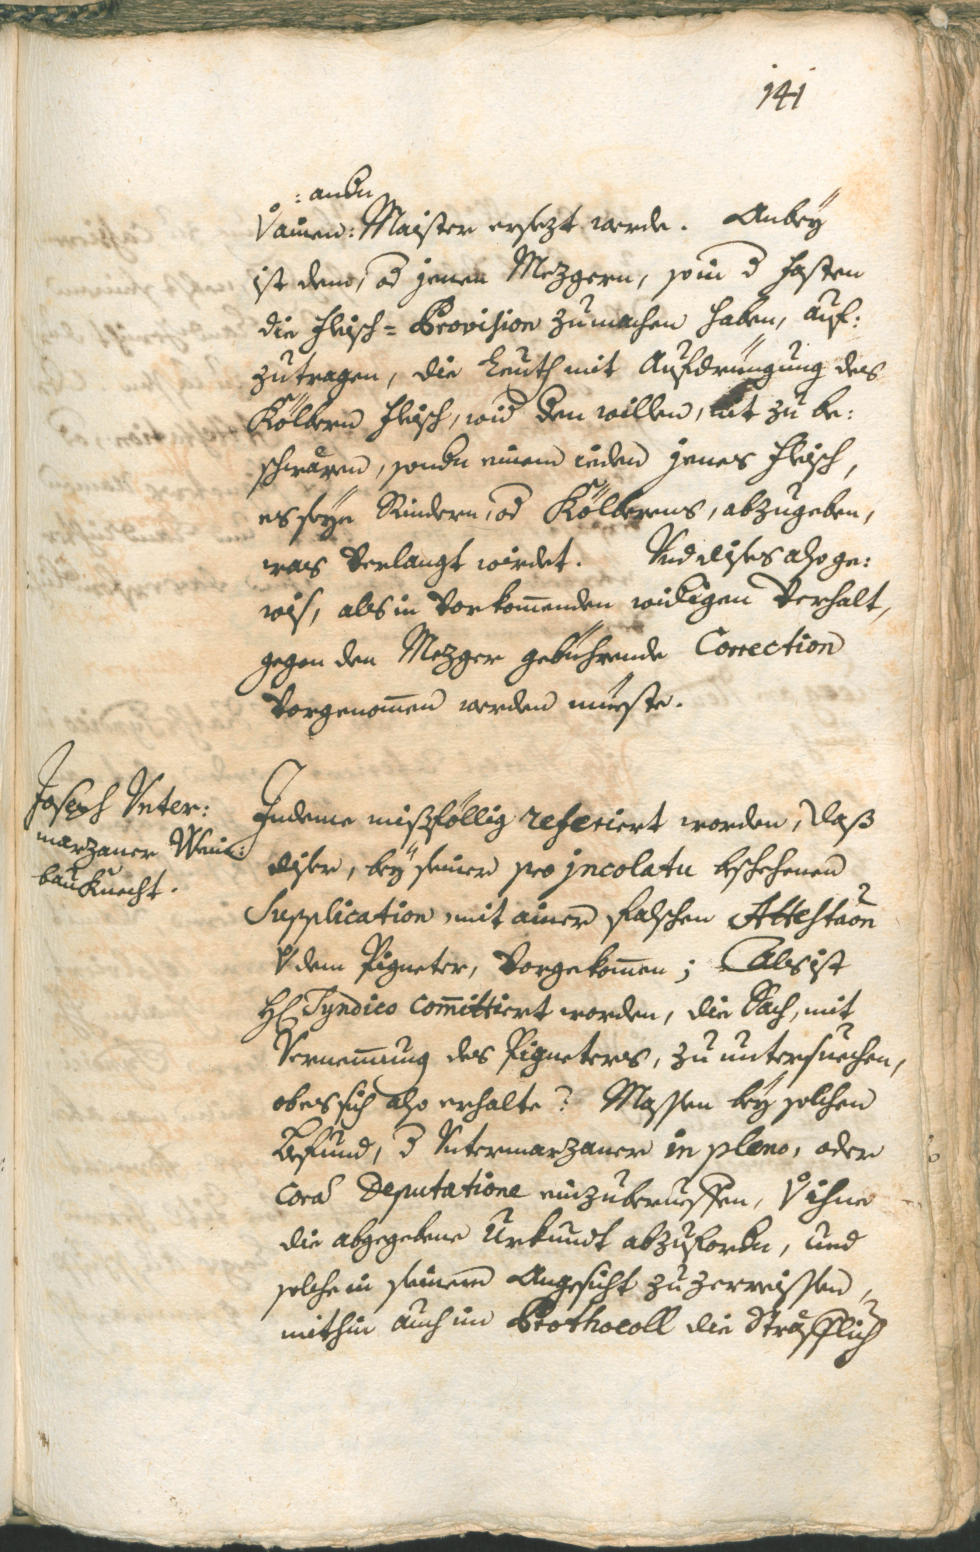 141
: andn
Vamen: Maister ersezt werde. Anbey
ist denen, od jenen Mezgern, so in d fasten
die fleisch= Provision zumachen haben, auf:
zutragen, die Leuth mit Aufdringung des
Kölbern fleisch, wid den willen, nit zu be:
schwären, sondn einem ieden jenes fleisch,
es seye Rindern, od Kölberens, abzugeben,
was Verlangt wirdet. Und dises also ge:
wis, als in Vorkom̅enden widrigen Verhalt,
gegen den Mezger gebührende Correction
Vorgenom̅en werden müeste.
Joseph Unter:
marzaner Wein:
bauKnecht.
Indeme mißföllig referiert worden, daß
diser, bey seiner pro jncolatu beschehenen
Supplication mit ainer falschen Attestaōn
V dem Pigneter, Vorgekom̅en; Als ist
H Syndico com̅ittiert worden, die Sach, mit
Vernem̅ung des Pigneters, zu untersuechen,
ob es sich also erhalte? Massen bey solchen
Befund, d Untermarzaner in pleno, oder
corā Deputatione einzuberueffen, V ihme
die abgegebene Urkundt abzufordn, und
solche in seinem Angesicht zuzerreissen,
mithin auch im Prothocoll die Sträfflich